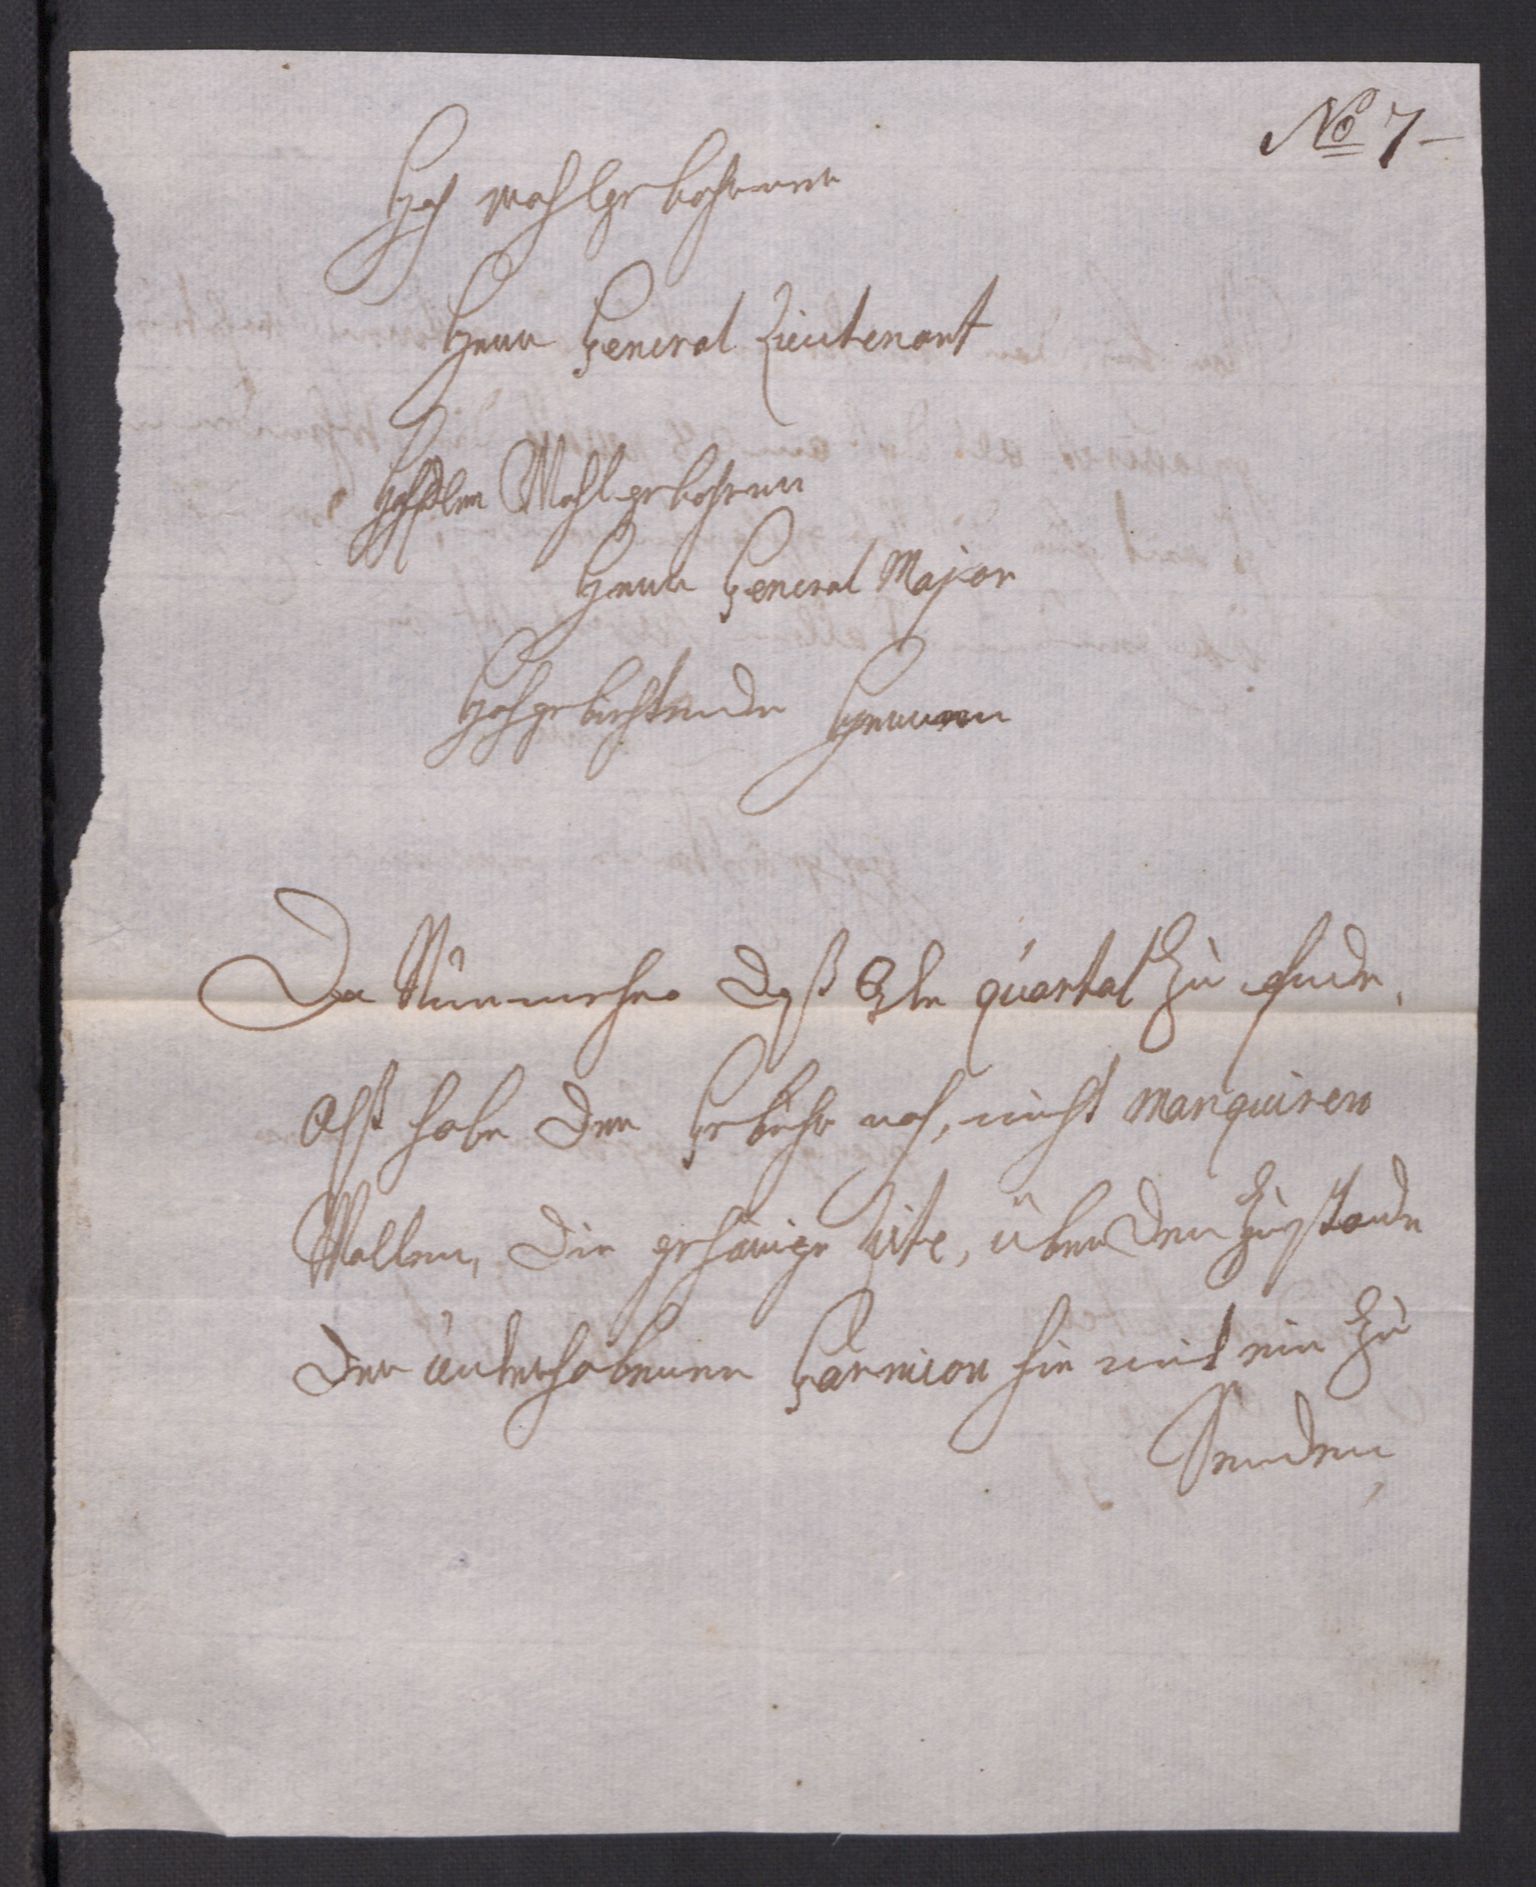 No 7
Hoch wohlgebohrner
Herr General Lieutenant
HochEdler Wohlgebohrner
Herr General Major
Hochgebiethende Herrren
Da Nunmehro daß 3te quartal zu Ende,
Alß habe der Gebühr nach, nicht manquiren
Wollen, die gehörige Liste, über den Zustande
der unterhabenen Garnison hie mit ein zu
Senden,